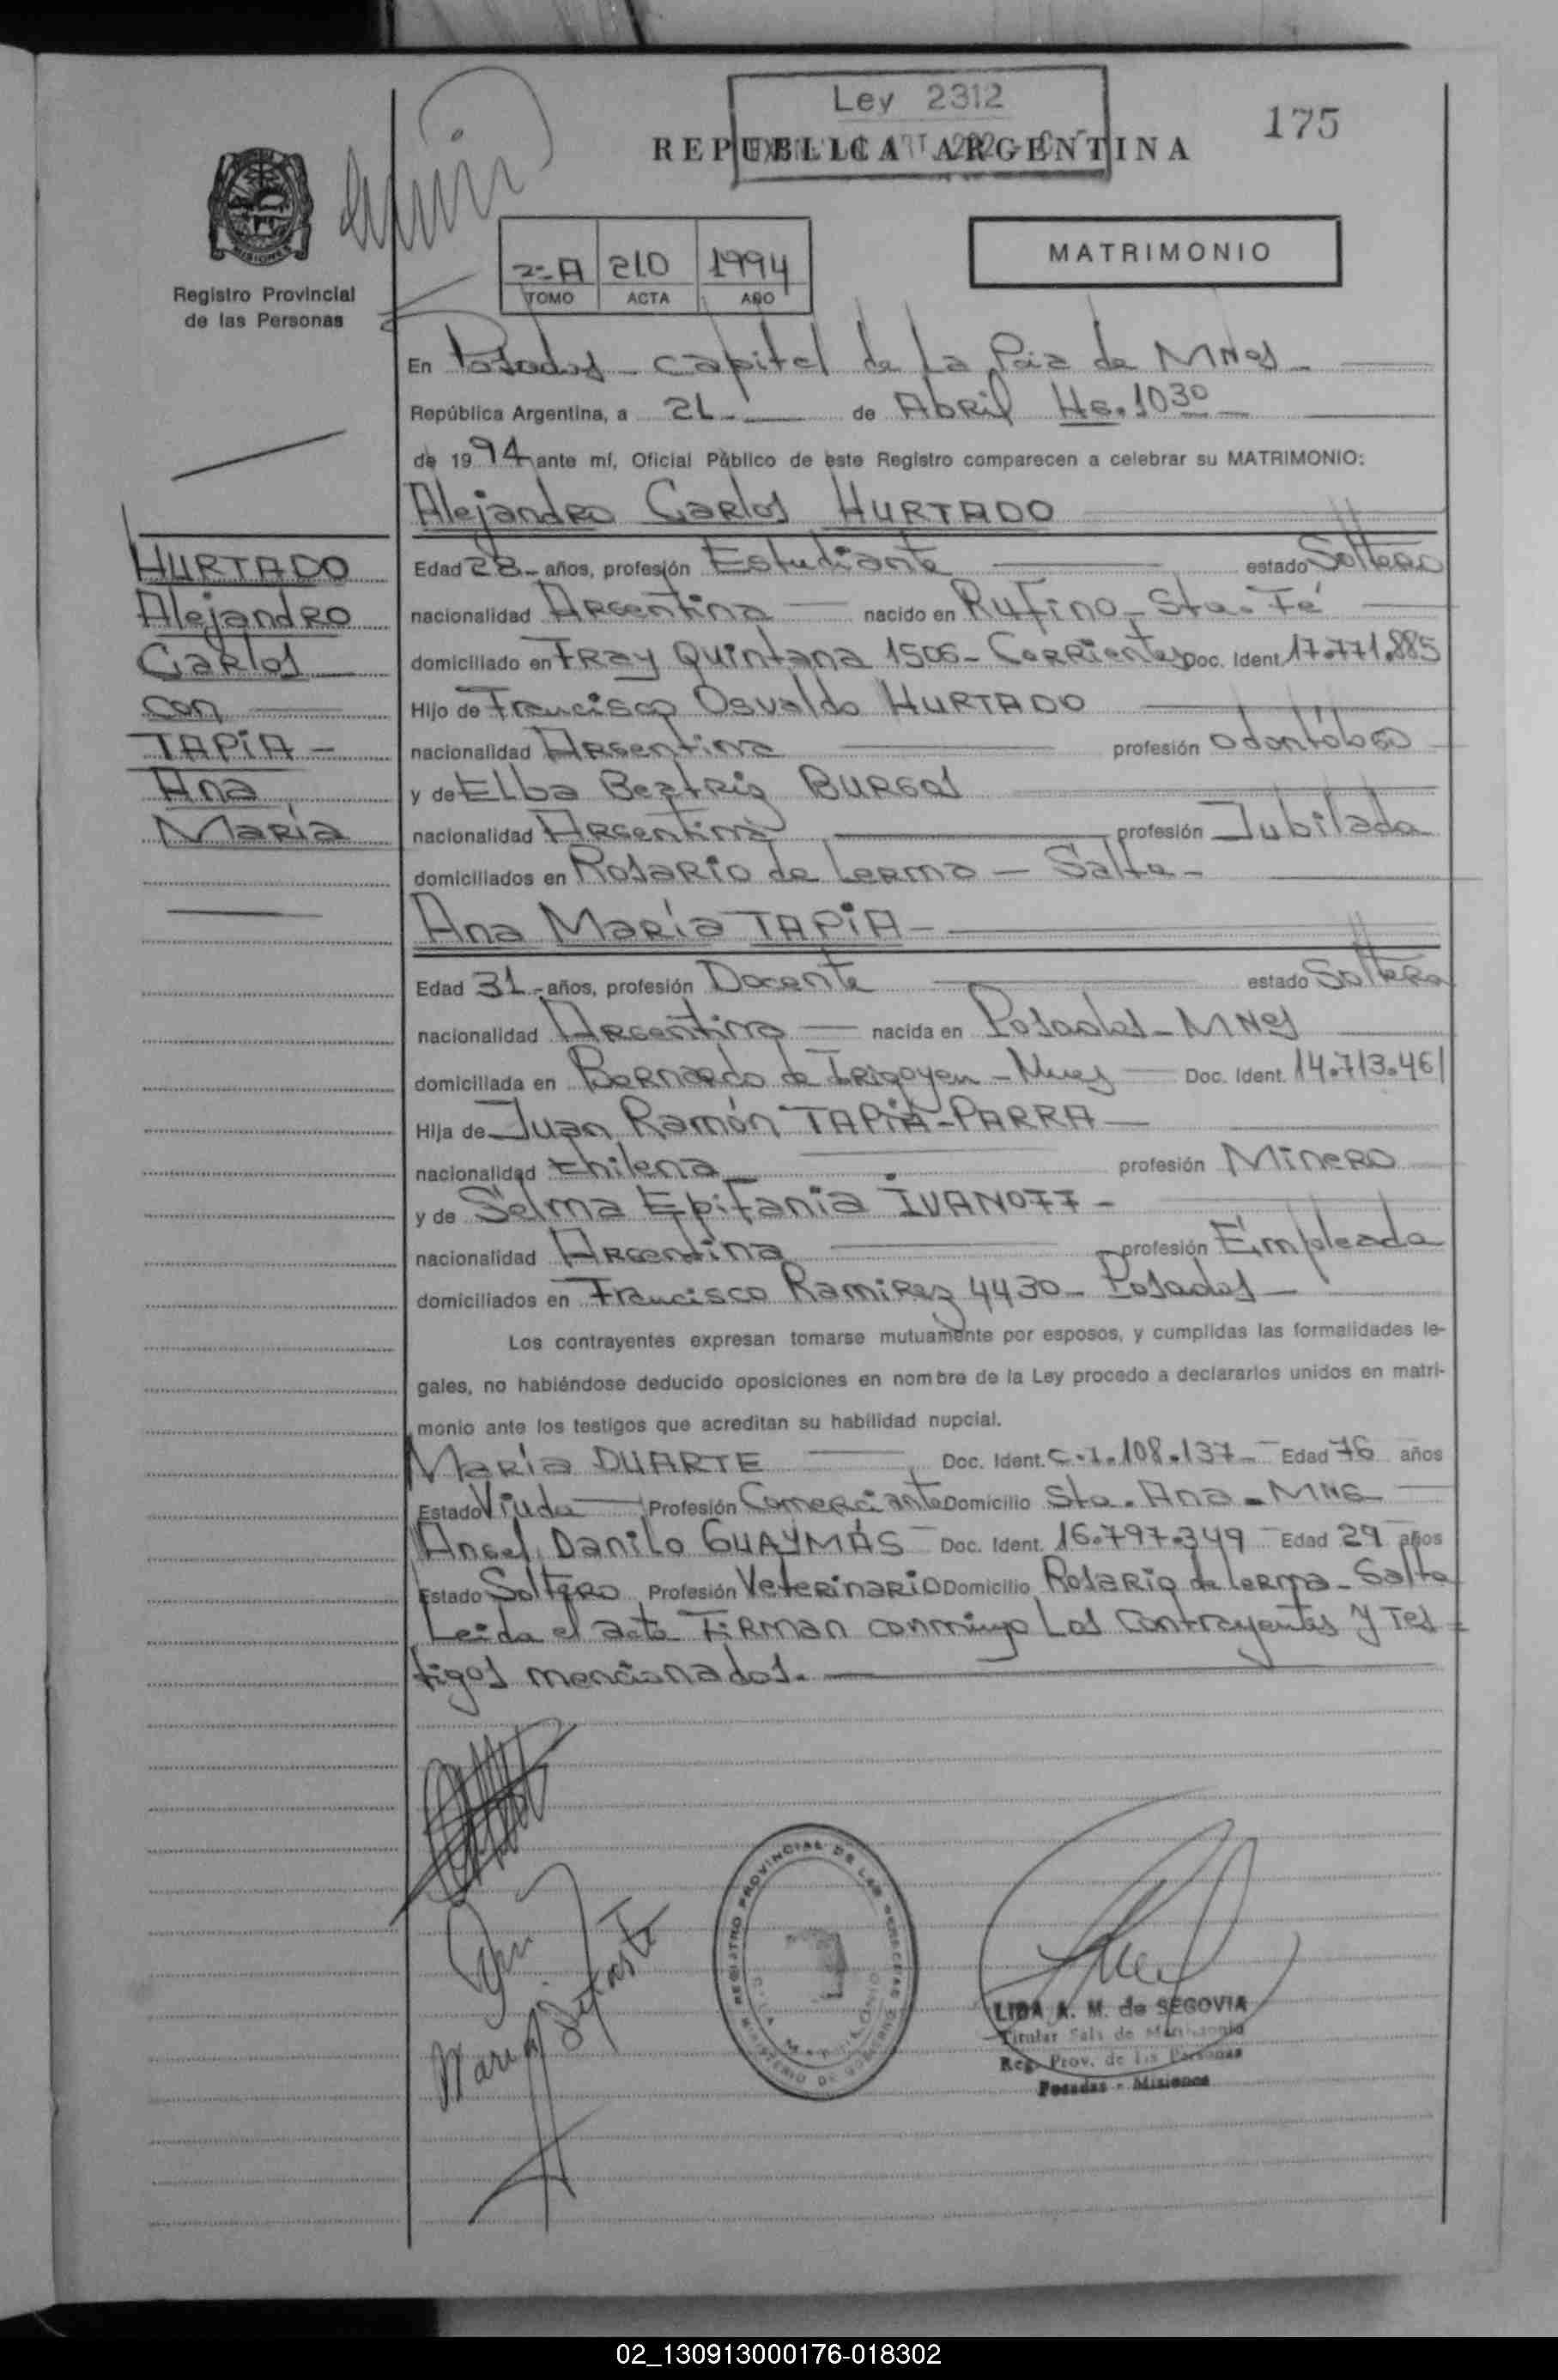 Ley 2312
175
REPUBLICA ARGENTINA
MISIONES
Registro Provincial
de las Personas
2º A 210 1994
TOMO ACTA AÑO
MATRIMONIO
En Posadas - Capital de La Pcia de MNes -
República Argentina, a 21 - de Abril Hs. 10 30 -
de 19 94 ante mí, Oficial Público de este Registro comparecen a celebrar su MATRIMONIO:
Alejandro Carlos HURTADO
HURTADO
Alejandro
Carlos
con
TAPIA -
Ana
María
Edad 28 - años, profesión Estudiante estado Soltero
nacionalidad Argentina nacido en Rufino - Sta. Fé
domiciliado en Fray Quintana 1506 - Corrientes Doc. Ident. 17.771.885
Hijo de Francisco Osvaldo HURTADO
nacionalidad Argentina profesión Odontólogo
y de Elba Beatriz BURGOS
nacionalidad Argentina profesión Jubilada
domiciliados en Rosario de Lerma - Salta -
Ana María TAPIA -
Edad 31 - años, profesión Docente estado Soltera
nacionalidad Argentina nacida en Posadas - MNes
domiciliada en Bernardo de Irigoyen - Mnes Doc. Ident. 14.713.461
Hija de Juan Ramón TAPIA - PARRA
nacionalidad Chilena profesión Minero
y de Selma Epifania IVANOFF -
nacionalidad Argentina profesión Empleada
domiciliados en Francisco Ramirez 4430 - Posadas -
Los contrayentes expresan tomarse mutuamente por esposos, y cumplidas las formalidades le-
gales, no habiéndose deducido oposiciones en nombre de la Ley procedo a declararlos unidos en matri-
monio ante los testigos que acreditan su habilidad nupcial.
María DUARTE Doc. Ident. C.I. 108.137 - Edad 76 años
Estado Viuda Profesión Comerciante Domicilio Sta. Ana - MNS
Angel Danilo GUAYMÁS - Doc. Ident. 16.797.349 - Edad 29 años
Estado Soltero Profesión Veterinario Domicilio Rosario de Lerma - Salta
Leida el acta firman conmigo los contrayentes y tes=
tigos mencionados.
REGISTRO PROVINCIAL DE LAS PERSONAS
MINISTERIO DE GOBIERNO
Maria Duarte
LIDA A. M. de SEGOVIA
Titular Sala de Matrimonio
Reg. Prov. de las Personas
Posadas - Misiones
02_130913000176-018302